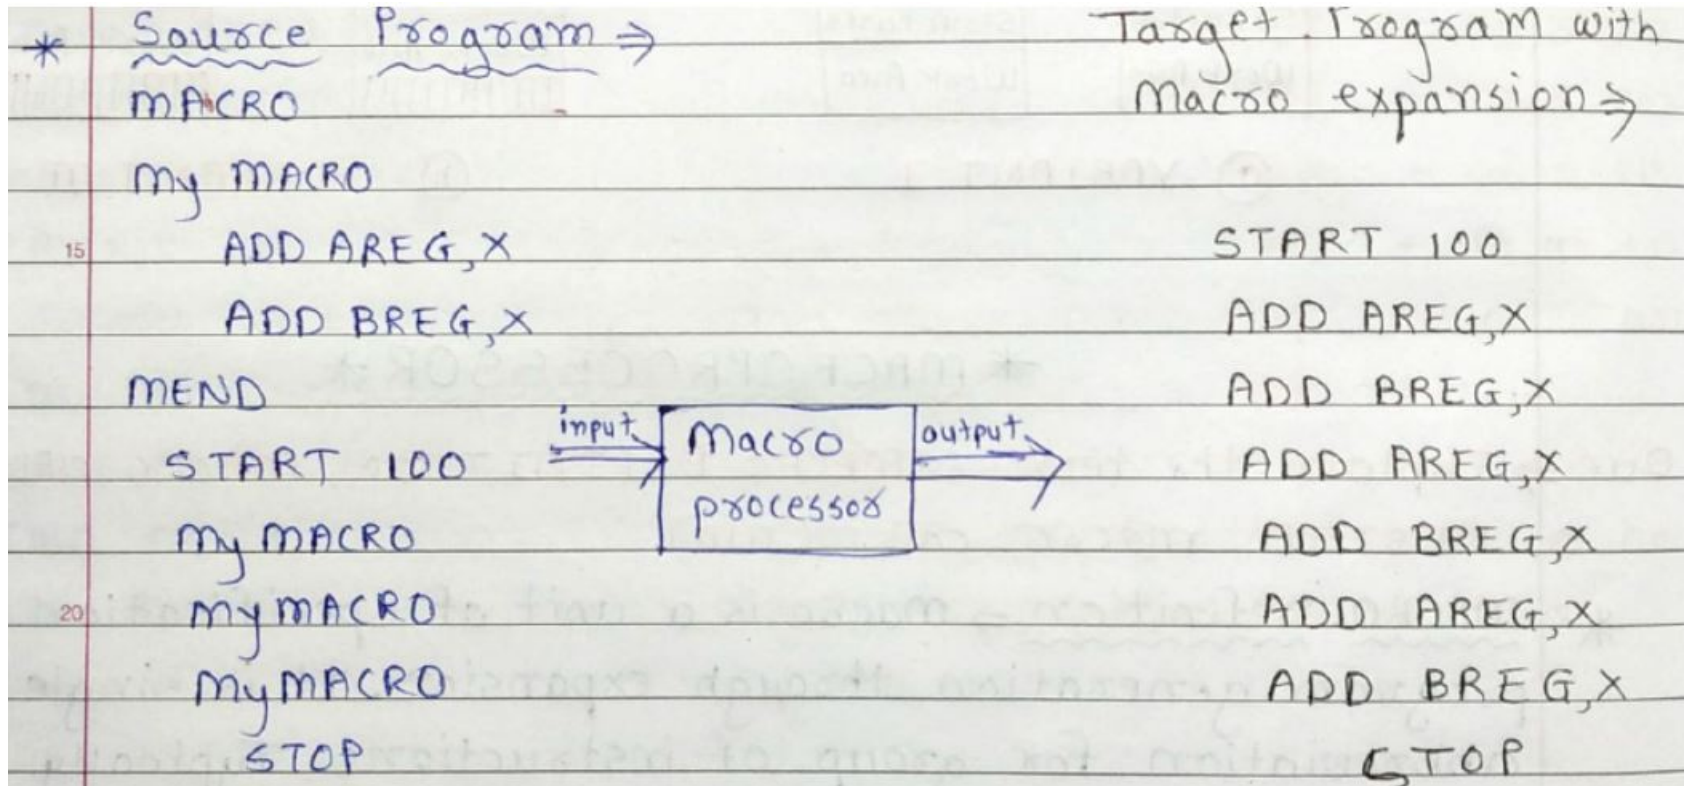 * Source Program ⇒
MACRO
My MACRO
15 ADD AREG,X
ADD BREG,X
MEND
START 100
My MACRO
20 My MACRO
My MACRO
STOP
input
Macro
processor
output
Target Program with
Macro expansion ⇒
START 100
ADD AREG,X
ADD BREG,X
ADD AREG,X
ADD BREG,X
ADD AREG,X
ADD BREG,X
STOP